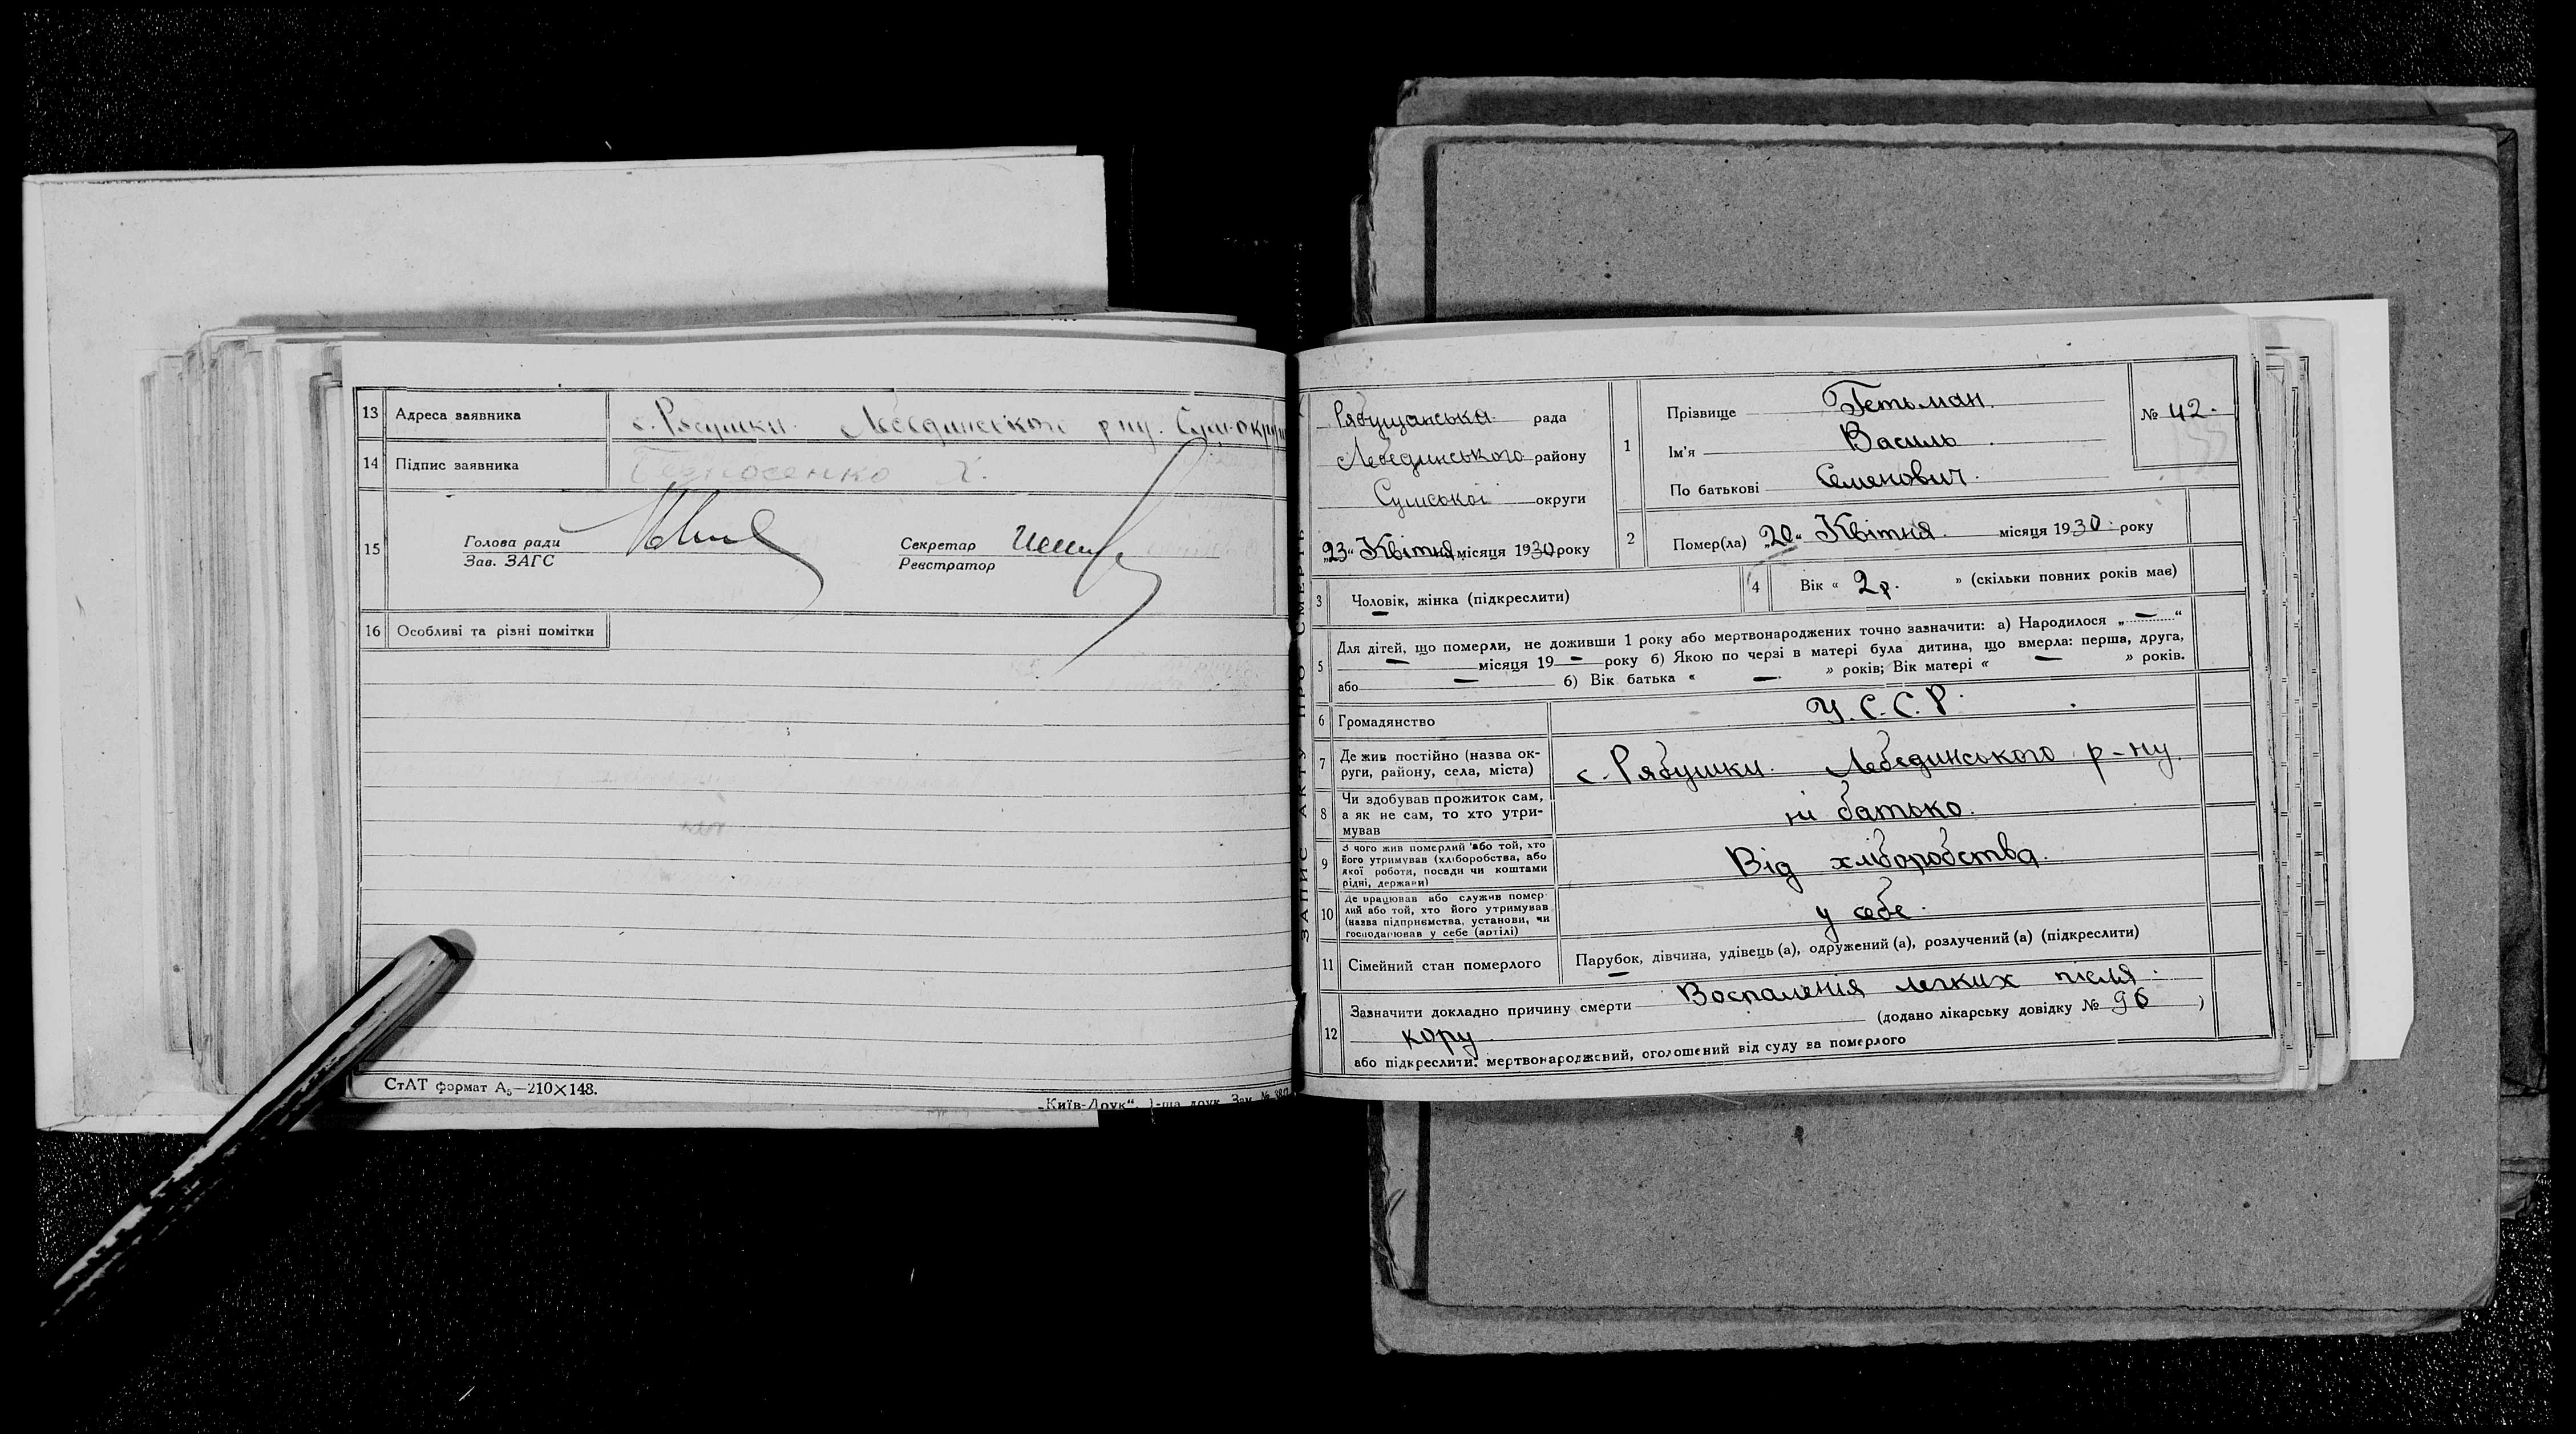 13 Адреса заявника с. Рябушки. Лебединського р-ну. Сум. округи
14 Підпис заявника Х.
15 Голова ради
Зав. ЗАГС
Секретар
Реєстратор
16 Особливі та різні помітки
СтАТ формат А₅—210×148.
„Київ-Друк“, 1-ша друк. Зам. №
ЗАПИС АКТУ ПРО СМЕРТЬ
Рябушанська рада
Лебединського району
Сумської округи
„23“ Квітня місяця 1930 року
1 Прізвище Гетьман.
Ім'я Василь
По батькові Семенович.
№ 42.
2 Помер(ла) „20“ Квітня місяця 1930 року
3 Чоловік, жінка (підкреслити)
4 Вік « 2 р. » (скільки повних років має)
5 Для дітей, що померли, не доживши 1 року або мертвонароджених точно зазначити: а) Народилося „ — “
— місяця 19 — року б) Якою по черзі в матері була дитина, що вмерла: перша, друга,
або — б) Вік батька « — » років; Вік матері « — » років.
6 Громадянство У.С.С.Р.
7 Де жив постійно (назва ок-
руги, району, села, міста) с. Рябушки. Лебединського р-ну.
8 Чи здобував прожиток сам,
а як не сам, то хто утри-
мував ні батько.
9 З чого жив померлий або той, хто
його утримував (хліборобства, або
якої роботи, посади чи коштами
рідні, держави) Від хліборобства.
10 Де працював або служив помер
лий або той, хто його утримував
(назва підприємства, установи, чи
господарював у себе (артілі) у себе.
11 Сімейний стан померлого Парубок, дівчина, удівець (а), одружений (а), розлучений (а) (підкреслити)
12 Зазначити докладно причину смерти Воспаленія легких після
кору. (додано лікарську довідку № 96 )
або підкреслити: мертвонароджений, оголошений від суду за померлого